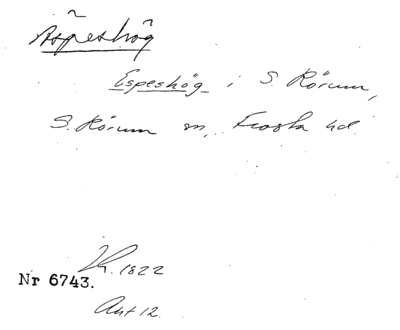 Äspeshög
Espeshög i S. Rörum,
S. Rörum sn, Frosta hd.
1822
Nr 6743.
Akt 12.